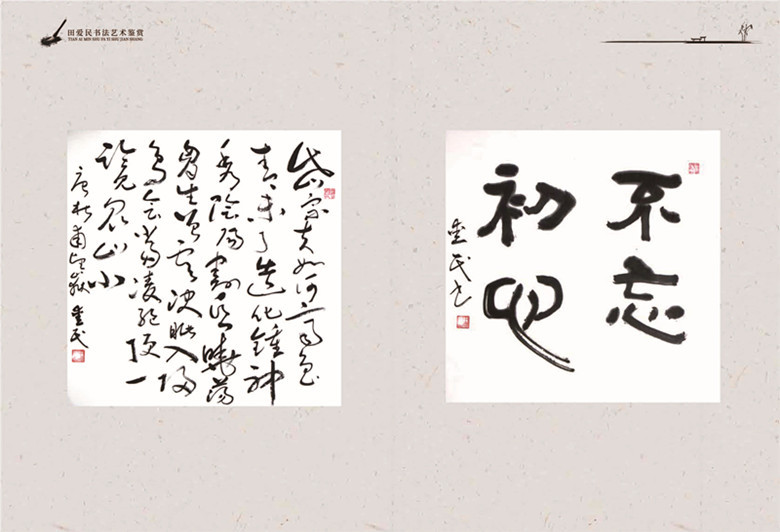 田爱民书法艺术鉴赏
TIAN AI MIN SHU FA YI SHU JIAN SHANG
岱宗夫如何齐鲁
青未了造化鍾神
秀陰陽割昏曉蕩
胸生曾雲決眦入歸
鳥会當凌絶頂一
覽眾山小
唐杜甫望嶽 爱民
不忘
初心
爱民书